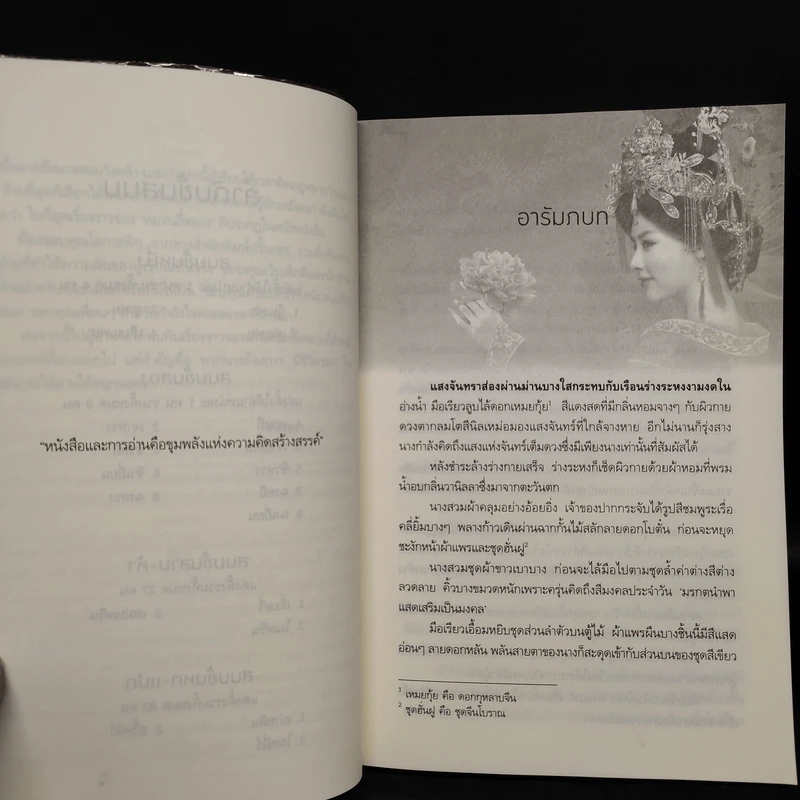 "หนังสือและการอ่านคือขุมพลังแห่งความคิดสร้างสรรค์"
อารัมภบท
แสงจันทราส่องผ่านม่านบางใสกระทบกับเรือนร่างระหงงามงดใน
อ่างน้ำ มือเรียวลูบไล้ดอกเหมยกุ้ย¹ สีแดงสดที่มีกลิ่นหอมจางๆ กับผิวกาย
ดวงตากลมโตสีนิลเหม่อมองแสงจันทร์ที่ใกล้จางหาย อีกไม่นานก็รุ่งสาง
นางกำลังคิดถึงแสงแห่งจันทร์เต็มดวงซึ่งมีเพียงนางเท่านั้นที่สัมผัสได้
หลังชำระล้างร่างกายเสร็จ ร่างระหงก็เช็ดผิวกายด้วยผ้าหอมที่พรม
น้ำอบกลิ่นวานิลลาซึ่งมาจากตะวันตก
นางสวมผ้าคลุมอย่างอ้อยอิ่ง เจ้าของปากกระจับได้รูปสีชมพูระเรื่อ
คลี่ยิ้มบางๆ พลางก้าวเดินผ่านฉากกั้นไม้สลักลายดอกโบตั๋น ก่อนจะหยุด
ชะงักหน้าผ้าแพรและชุดฮั่นฝู²
นางสวมชุดผ้าขาวเบาบาง ก่อนจะไล้มือไปตามชุดล้ำค่าต่างสีต่าง
ลวดลาย คิ้วบางขมวดหนักเพราะครุ่นคิดถึงสีมงคลประจำวัน 'มรกตนำพา
แสดเสริมเป็นมงคล'
มือเรียวเอื้อมหยิบชุดส่วนลำตัวบนตู้ไม้ ผ้าแพรผืนบางชิ้นนี้มีสีแสด
อ่อนๆ ลายดอกหลัน พลันสายตาของนางก็สะดุดเข้ากับส่วนบนของชุดสีเขียว
¹ เหมยกุ้ย คือ ดอกกุหลาบจีน
² ชุดฮั่นฝู คือ ชุดจีนโบราณ